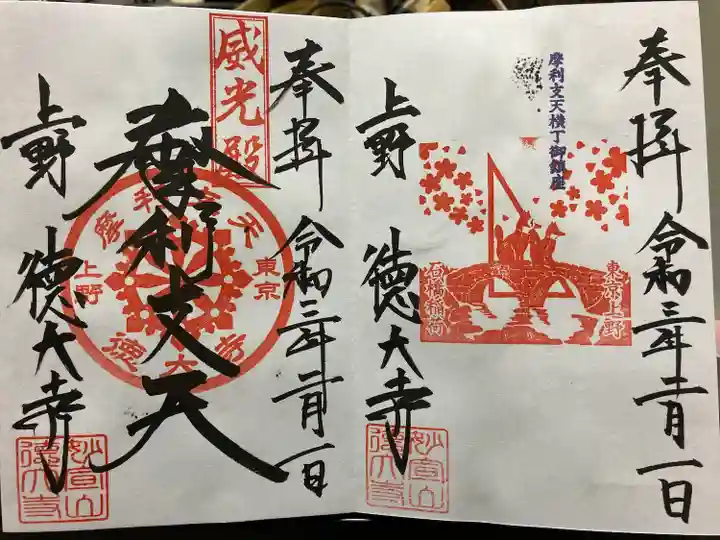 奉拝 令和三年二月一日
摩利支天横丁御鎮座
東京上野
石橋稲荷
上野 徳大寺
妙宣山
徳大寺
奉拝 令和三年二月一日
威光殿
摩利支天
摩利支天
東京
上野
徳大寺
上野 徳大寺
妙宣山
徳大寺